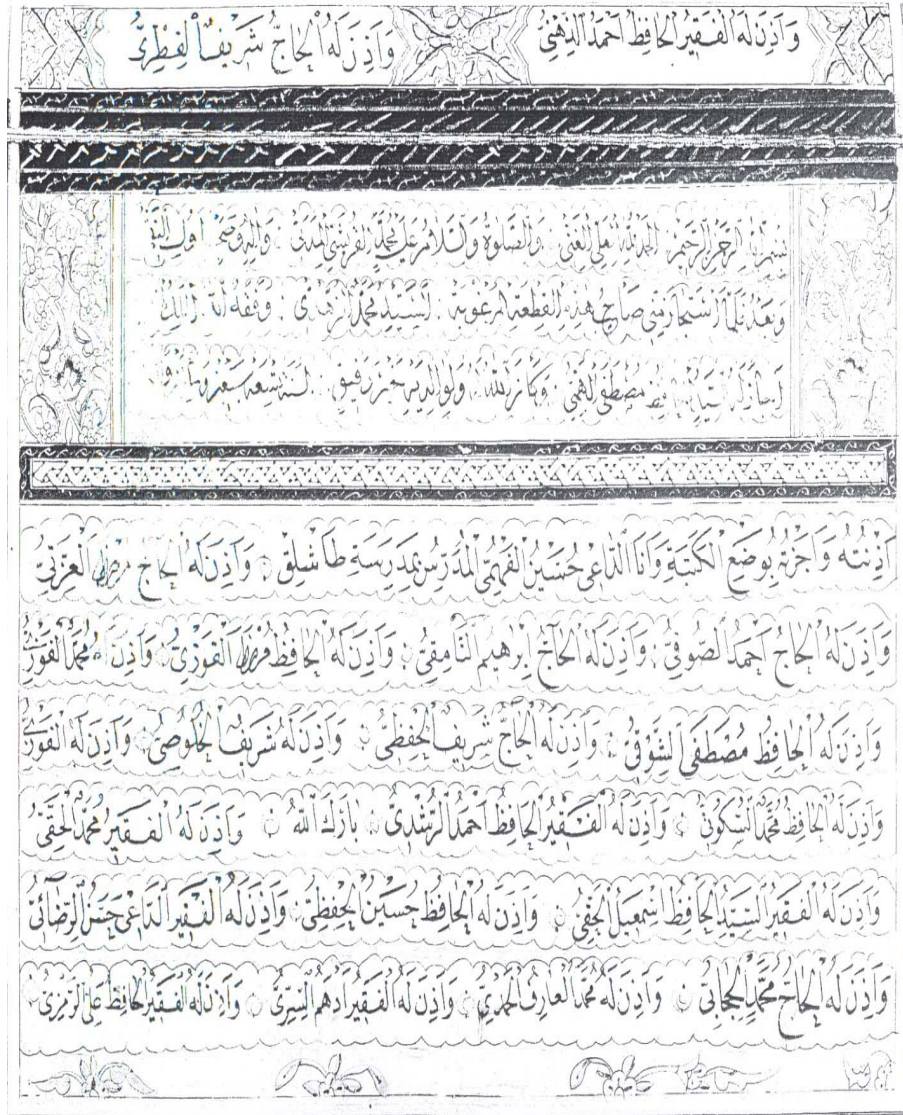 وَأَذِنَ لَهُ الْفَقِيرُ الْحَافِظُ أَحْمَدُ الذِّهْنِيُّ وَأَذِنَ لَهُ الْحَاجُّ شَرِيفٌ الْفِطْرِيُّ
الرحمن الرحيم الحمد لله العلي الغني والصلوة والسلام على محمد القرشي المدني وآله وصحبه
وبعد فلما استجازني صاحب هذه القطعة المرغوبة السيد محمد الزهدي وفقه الله
مصطفى الفهمي ولوالديه
أَذِنْتُهُ وَأَجَزْتُهُ بِوَضْعِ الْكَتَبَةِ وَأَنَا الدَّاعِي حُسَيْنُ الْفَهْمِيُّ الْمُدَرِّسُ بِمَدْرَسَةِ طَاشْلِقْ وَأَذِنَ لَهُ الْحَاجُّ الْعِزَّتِيُّ
وَأَذِنَ لَهُ الْحَاجُّ أَحْمَدُ الصُّوفِيُّ وَأَذِنَ لَهُ الْحَاجُّ إِبْرٰهِيمُ النَّامِقِيُّ وَأَذِنَ لَهُ الْحَافِظُ الْفَوْزِيُّ وَأَذِنَ مُحَمَّدُ الْفَوْزِيُّ
وَأَذِنَ لَهُ الْحَافِظُ مُصْطَفَى الشَّوْقِيُّ وَأَذِنَ لَهُ الْحَاجُّ شَرِيفُ الْحِفْظِيُّ وَأَذِنَ لَهُ شَرِيفُ الْخُلُوصِيُّ وَأَذِنَ لَهُ الْفَوْزِيُّ
وَأَذِنَ لَهُ الْحَافِظُ مُحَمَّدُ السُّكُوتِيُّ وَأَذِنَ لَهُ الْفَقِيرُ الْحَافِظُ أَحْمَدُ الرُّشْدِيُّ بَارَكَ اللهُ وَأَذِنَ لَهُ الْفَقِيرُ مُحَمَّدُ الْحَقِّيُّ
وَأَذِنَ لَهُ الْفَقِيرُ السَّيِّدُ الْحَافِظُ إِسْمَعِيلُ الْحَقِّيُّ وَأَذِنَ لَهُ الْحَافِظُ حُسَيْنُ الْحِفْظِيُّ وَأَذِنَ لَهُ الْفَقِيرُ الدَّاعِي حَسَنُ الرِّضَائِيُّ
وَأَذِنَ لَهُ الْحَاجُّ مُحَمَّدُ الْحِجَابِيُّ وَأَذِنَ لَهُ مُحَمَّدُ الْعَارِفُ الْحَمْدِيُّ وَأَذِنَ لَهُ الْفَقِيرُ أَدْهَمُ السِّرِّيُّ وَأَذِنَ لَهُ الْفَقِيرُ الْحَافِظُ عَلِيُّ الرَّمْزِيُّ